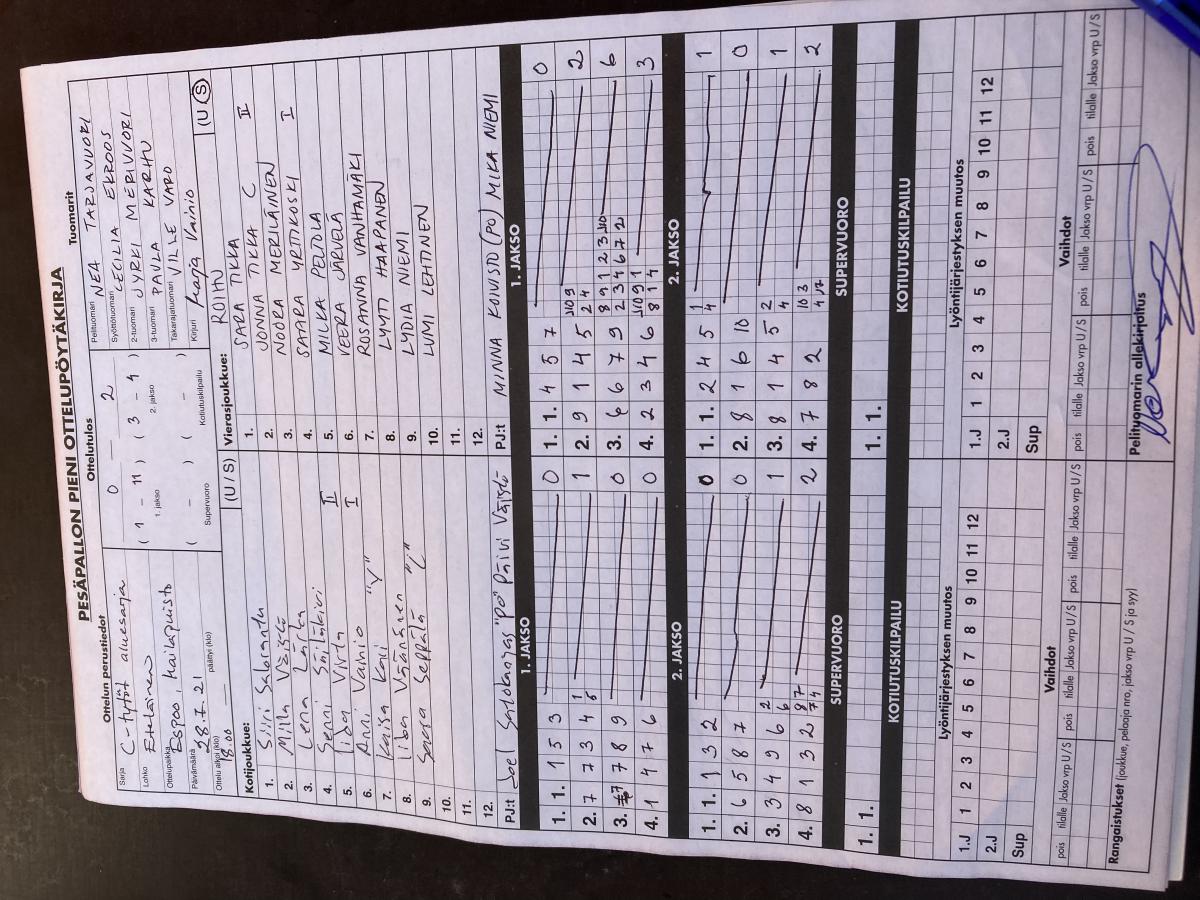 PESÄPALLON PIENI OTTELUPÖYTÄKIRJA
Ottelun perustiedot
Sarja C-tytöt aluesarja
Lohko Eteläinen
Ottelupaikka Espoo, Hailapuisto
Päivämäärä 28.7.21
Ottelu alkoi (klo) 18.00 päättyi (klo)
Ottelutulos
0 — 2
( 1 – 11 ) ( 3 – 4 )
1. jakso 2. jakso
( – ) ( – )
Supervuoro Kotiutuskilpailu
Tuomarit
Pelituomari NEA TARJAVUORI
Syöttötuomari CECILIA EKROOS
2-tuomari JYRKI MERIVUORI
3-tuomari PAULA KARHU
Takarajatuomari VILLE VARO
Kirjuri Marja Vainio
Kotijoukkue: (U / S)
1. Siiri
2. Milla Väistö
3. Lena
4. Senni II
5. Iida Virta I
6. Anni Vainio "Y"
7. Kaisa Kari
8. Iina Väänänen "C"
9. Sonja Seppälä
10.
11.
12.
PJ:t Joel Satokangas "PO" Päivi Väistö
Vierasjoukkue: ROIHU (U / S)
1. SARA TIKKA
2. JONNA TIKKA C II
3. NOORA MERILÄINEN
4. SAARA YRTTIKOSKI I
5. MILKA PELTOLA
6. VEERA JÄRVELÄ
7. ROSANNA VANHAMÄKI
8. LYYTI HAAPANEN
9. LYDIA NIEMI
10. LUMI LEHTINEN
11.
12.
PJ:t MINNA KOIVISTO (PO) MIKA NIEMI
1. JAKSO
1. 1. 1 5 3 0
2. 7 7 3 4 1 6 1
3. 7 7 8 9 0
4. 1 4 7 6 0
2. JAKSO
1. 1. 1 3 2 0
2. 6 5 8 7 0
3. 3 4 9 6 2 6 1
4. 8 1 3 2 8 7 7 4 2
SUPERVUORO
1. 1.
KOTIUTUSKILPAILU
1. JAKSO
1. 1. 4 5 7 0
2. 9 1 4 5 10 9 2 4 2
3. 6 6 7 9 8 9 1 2 3 10 2 3 4 6 7 2 6
4. 2 3 4 6 10 9 1 8 1 4 3
2. JAKSO
1. 1. 2 4 5 1 4 1
2. 8 1 6 10 0
3. 8 1 4 5 2 4 1
4. 7 8 2 10 3 4 2
SUPERVUORO
1. 1.
KOTIUTUSKILPAILU
Lyöntijärjestyksen muutos
1.J 1 2 3 4 5 6 7 8 9 10 11 12
2.J
Sup
Vaihdot
pois tilalle Jakso vrp U / S pois tilalle Jakso vrp U / S
Lyöntijärjestyksen muutos
1.J 1 2 3 4 5 6 7 8 9 10 11 12
2.J
Sup
Vaihdot
pois tilalle Jakso vrp U / S pois tilalle Jakso vrp U / S pois tilalle Jakso vrp U / S
Rangaistukset (joukkue, pelaaja nro, jakso vrp U / S ja syy)
Pelituomarin allekirjoitus